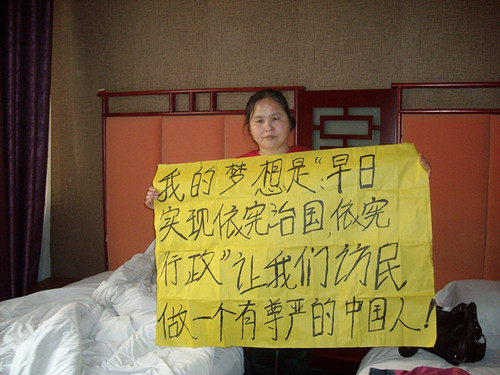 我的梦想是“早日
实现依宪治国,依宪
行政”让我们访民
做一个有尊严的中国人!